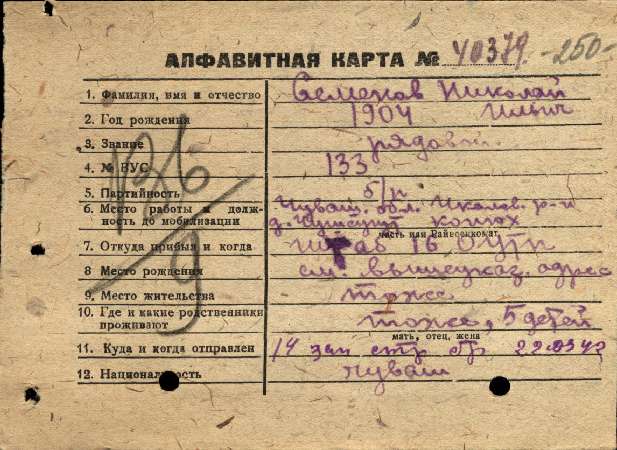 АЛФАВИТНАЯ КАРТА № 40379 -250-
1. Фамилия, имя и отчество Семенов Николай
Ильич
2. Год рождения 1904
3. Звание рядовой
4. № ВУС 133
5. Партийность б/п
6. Место работы и долж-
ность до мобилизации Чуваш. обл. Икалов. р-н
д. конюх
часть или Райвоенкомат
7. Откуда прибыл и когда Штаб 16
8 Место рождения см. вышеуказ. адрес
9. Место жительства тоже
10. Где и какие родственники
проживают тоже, 5 детей
мать, отец, жена
11. Куда и когда отправлен 14 зап стр бр
12. Национальность чуваш